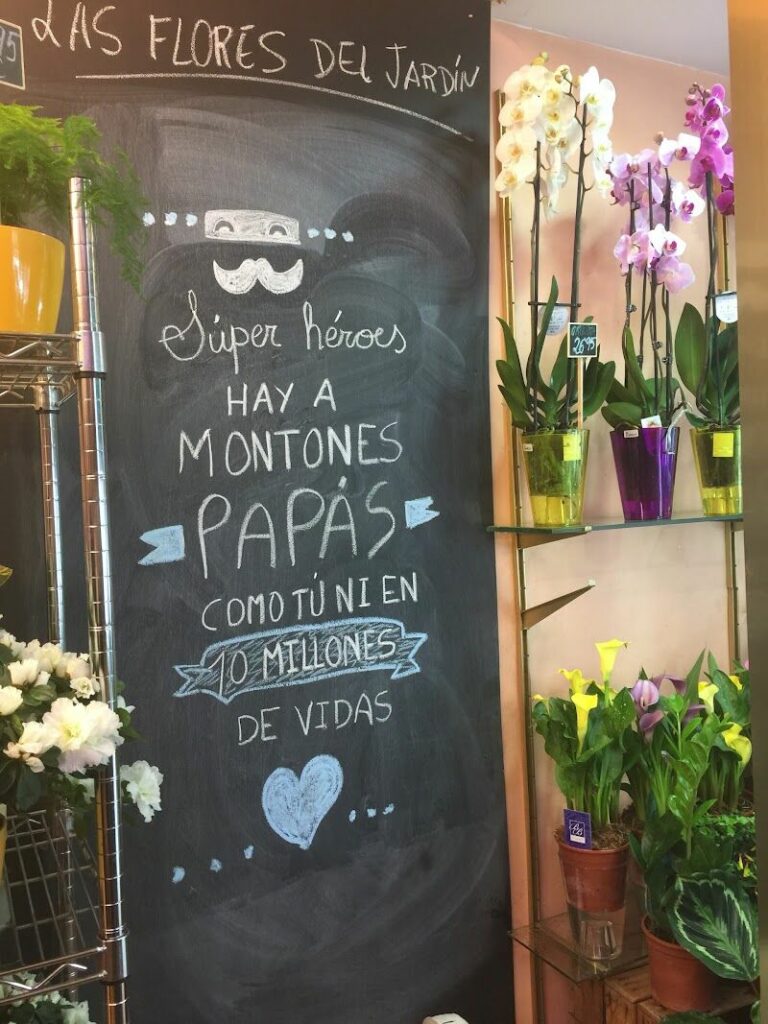 LAS FLORES DEL JARDÍN
95
Súper héroes
HAY A
MONTONES
PAPÁS
COMO TÚ NI EN
10 MILLONES
DE VIDAS
26'95